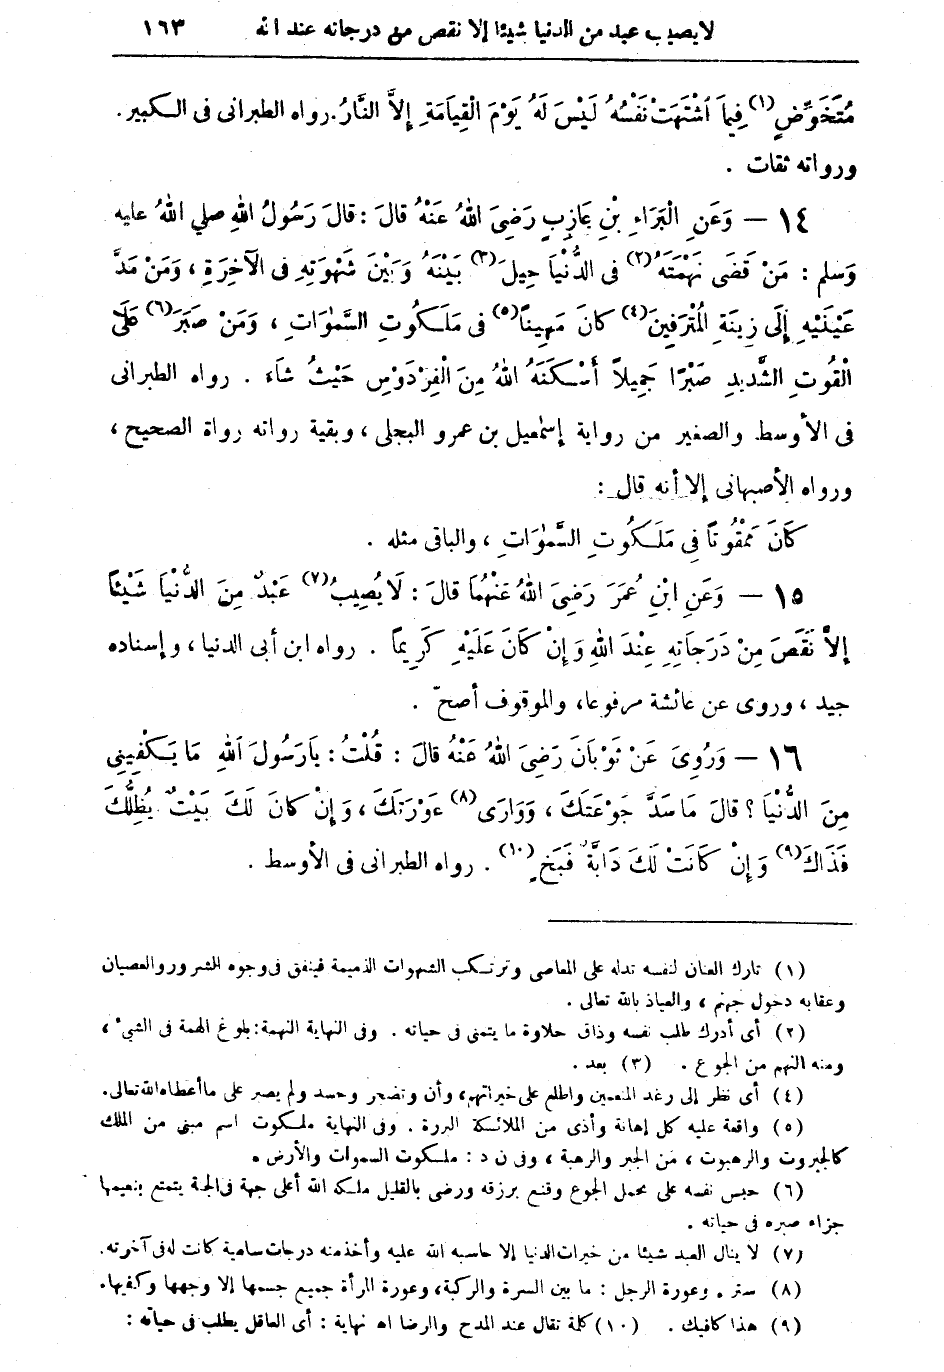 لا يصيب عبد من الدنيا شيئا إلا نقص من درجاته عند الله ١٦٣
مُتَخَوِّضٍ (١) فِيمَا اَشْتَهَتْ نَفْسُهُ لَيْسَ لَهُ يَوْمَ الْقِيَامَةِ إِلاَّ النَّارُ. رواه الطبرانى فى الكبير.
ورواته ثقات .
١٤ — وَعَنِ الْبَرَاءِ بْنِ عَازِبٍ رَضِىَ اللهُ عَنْهُ قالَ : قالَ رَسُولُ اللهِ صلي اللهُ عليه
وَسلم : مَنْ قَضَى نَهْمَتَهُ (٢) فى الدُّنْيَا حِيلَ (٣) بَيْنَهُ وَبَيْنَ شَهْوَتِهِ فى الآخِرَةِ ، وَمَنْ مَدَّ
عَيْنَيْهِ إِلَى زِينَةِ الْمُتْرَفِينَ (٤) كانَ مَهِيناً (٥) فى مَلَكُوتِ السَّمٰوَاتِ ، وَمَنْ صَبَرَ (٦) عَلَى
الْقُوتِ الشَّدِيدِ صَبْرًا جَمِيلاً أَسْكَنَهُ اللهُ مِنَ الْفِرْدَوْسِ حَيْثُ شَاءَ . رواه الطبرانى
فى الأوسط والصغير من رواية إسمٰعيل بن عمرو البجلى ، وبقية رواته رواة الصحيح ،
ورواه الأصبهانى إلا أنه قال :
كَانَ مَمْقُوتاً فى مَلَكُوتِ السَّمٰوَاتِ ، والباقى مثله .
١٥ — وَعَنِ ابْنِ عُمَرَ رَضِىَ اللهُ عَنْهُمَا قالَ : لَا يُصِيبُ (٧) عَبْدٌ مِنَ الدُّنْيَا شَيْئاً
إِلاَّ نَقَصَ مِنْ دَرَجَاتِهِ عِنْدَ اللهِ وَإِنْ كَانَ عَلَيْهِ كَرِيماً . رواه ابن أبى الدنيا ، وإسناده
جيد ، وروى عن عائشة مرفوعا، والموقوف أصحّ .
١٦ — وَرُوِىَ عَنْ ثَوْبَانَ رَضِىَ اللهُ عَنْهُ قالَ : قُلْتُ : يَارَسُولَ اللهِ مَا يَكْفِينِى
مِنَ الدُّنْيَا ؟ قالَ مَا سَدَّ جَوْعَتَكَ ، وَوَارَى (٨) عَوْرَتَكَ ، وَإِنْ كانَ لَكَ بَيْتٌ يُظِلُّكَ
فَذَاكَ (٩) وَإِنْ كَانَتْ لَكَ دَابَّةٌ فَبَخٍ (١٠) . رواه الطبرانى فى الأوسط .
(١) تارك العنان لنفسه تدله على المعاصى وترتكب الشهوات الذميمة فينفق فى وجوه الشرور والعصيان
وعقابه دخول جهنم ، والعياذ بالله تعالى .
(٢) أى أدرك طلب نفسه وذاق حلاوة ما يتمنى فى حياته . وفى النهاية النهمة : بلوغ الهمة فى الشىء ،
ومنه النهم من الجوع . (٣) بعد .
(٤) أى نظر إلى رغد المنعمين واطلع على خيراتهم، وأن وتضجر وحسد ولم يصبر على ما أعطاه الله تعالى.
(٥) واقعة عليه كل إهانة وأذى من الملائكة البررة . وفى النهاية ملكوت اسم مبنى من الملك
كالجبروت والرهبوت ، من الجبر والرهبة ، وفى ن د : ملكوت السموات والأرض .
(٦) حبس نفسه على تحمل الجوع وقنع برزقه ورضى بالقليل ملكه الله أعلى جهة فى الجنة يتمتع بنعيمها
جزاء صبره فى حياته .
(٧) لا ينال العبد شيئا من خيرات الدنيا إلا حاسبه الله عليه وأخذ منه درجات سامية كانت له فى آخرته.
(٨) ستر . وعورة الرجل : ما بين السرة والركبة، وعورة المرأة جميع جسمها إلا وجهها وكفيها.
(٩) هذا كافيك . (١٠) كلمة تقال عند المدح والرضا اه نهاية : أى العاقل يطلب فى حياته :